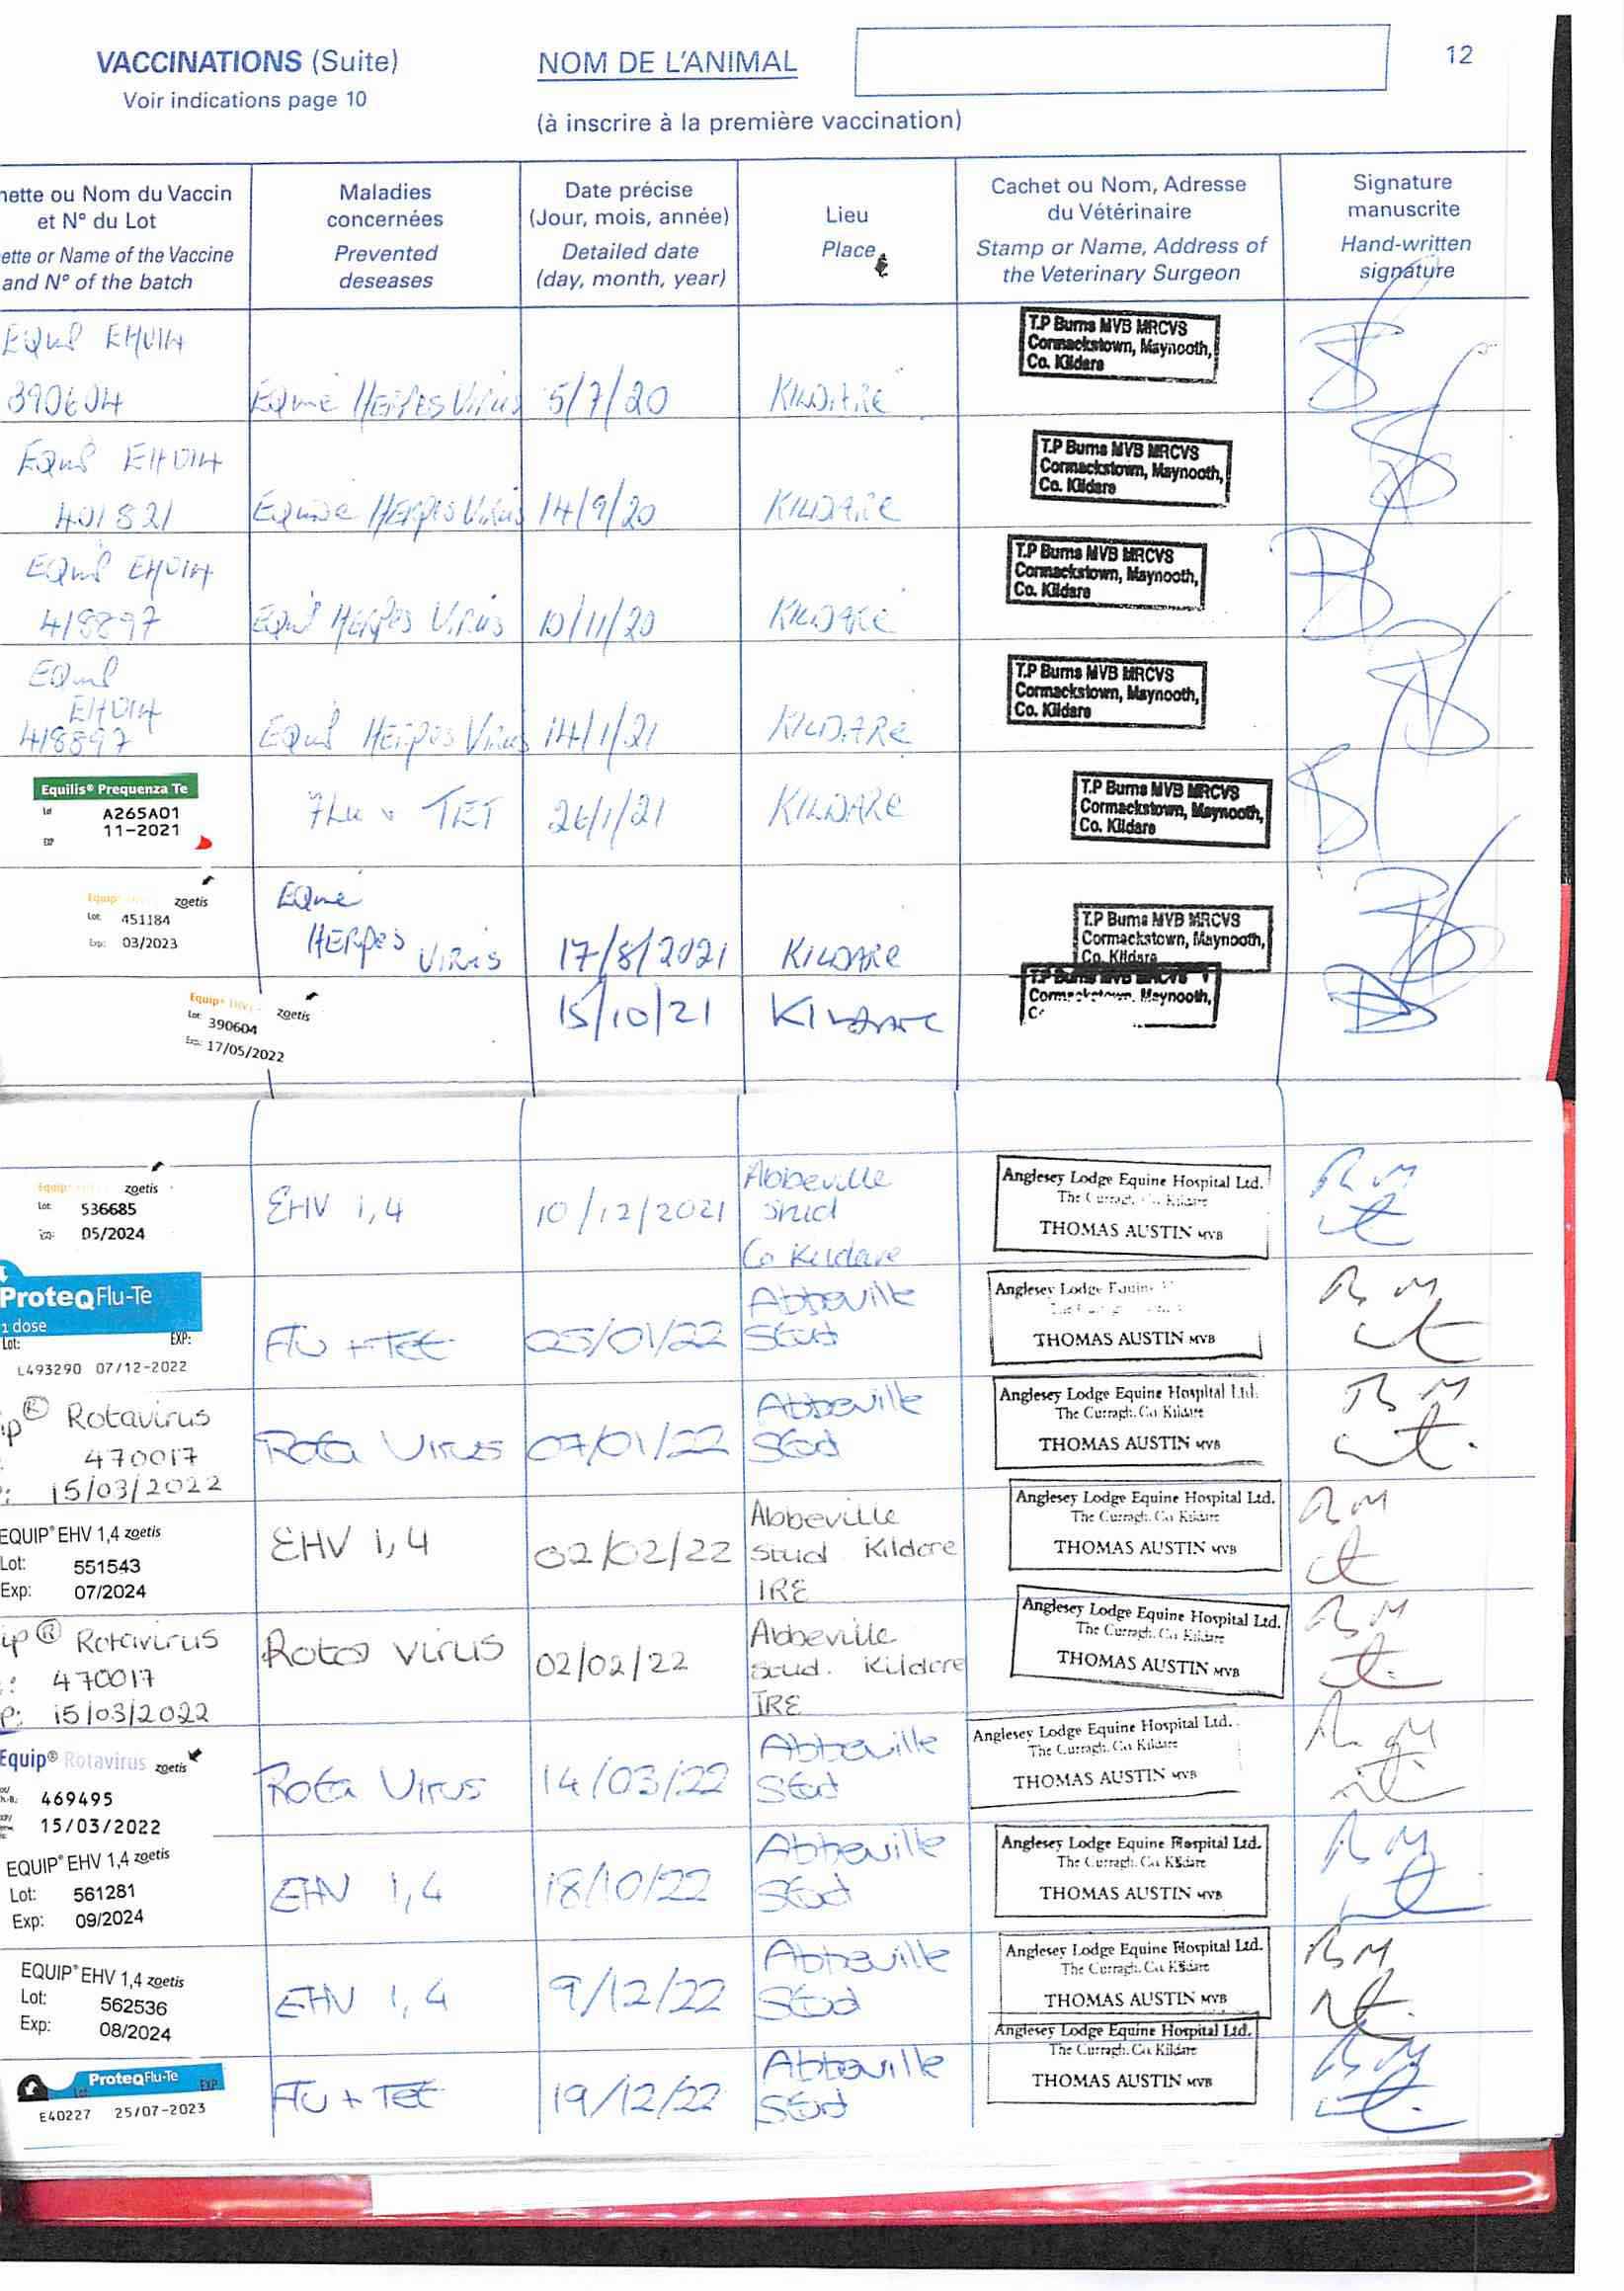 VACCINATIONS (Suite)
Voir indications page 10
NOM DE L'ANIMAL
(à inscrire à la première vaccination)
12
nette ou Nom du Vaccin
et N° du Lot
ette or Name of the Vaccine
and N° of the batch
Maladies
concernées
Prevented
deseases
Date précise
(Jour, mois, année)
Detailed date
(day, month, year)
Lieu
Place
Cachet ou Nom, Adresse
du Vétérinaire
Stamp or Name, Address of
the Veterinary Surgeon
Signature
manuscrite
Hand-written
signature
EHV14
390604
HERPES VIRUS 5/7/20 KILDARE
T.P Burns MVB MRCVS
Cormackstown, Maynooth,
Co. Kildare
EHV14
401821
Equine HERPES Virus 14/9/20 KILDARE
T.P Burns MVB MRCVS
Cormackstown, Maynooth,
Co. Kildare
EHV14
418897
HERPES VIRUS 10/11/20 KILDARE
T.P Burns MVB MRCVS
Cormackstown, Maynooth,
Co. Kildare
EHV14
418897
HERPES Virus 14/1/21 KILDARE
T.P Burns MVB MRCVS
Cormackstown, Maynooth,
Co. Kildare
Equilis® Prequenza Te
Lot A265A01
11-2021
EXP
FLU TET 26/1/21 KILDARE
T.P Burns MVB MRCVS
Cormackstown, Maynooth,
Co. Kildare
Equip zoetis
Lot: 451184
Exp: 03/2023
HERPES VIRUS 17/8/2021 KILDARE
T.P Burns MVB MRCVS
Cormackstown, Maynooth,
Co. Kildare
Equip® zoetis
Lot: 390604
Exp: 17/05/2022
15/10/21 KILDARE
T.P Burns MVB MRCVS
Cormackstown, Maynooth,
Equip zoetis
Lot: 536685
Exp: 05/2024
EHV 1,4
10/12/2021
Abbeville
Stud
Co Kildare
Anglesey Lodge Equine Hospital Ltd.
The Curragh, Co Kildare
THOMAS AUSTIN MVB
ProteqFlu-Te
1 dose
Lot: EXP:
L493290 07/12-2022
Flu + Tet
05/01/22
Abbeville
Stud
Anglesey Lodge Equine
THOMAS AUSTIN MVB
ip® Rotavirus
470017
: 15/03/2022
Rota Virus
07/01/22
Abbeville
Stud
Anglesey Lodge Equine Hospital Ltd.
The Curragh, Co Kildare
THOMAS AUSTIN MVB
EQUIP® EHV 1,4 zoetis
Lot: 551543
Exp: 07/2024
EHV 1,4
02/02/22
Abbeville
Stud Kildare
IRE
Anglesey Lodge Equine Hospital Ltd.
The Curragh, Co Kildare
THOMAS AUSTIN MVB
ip® Rotavirus
: 470017
P: 15/03/2022
Rota virus
02/02/22
Abbeville
Stud. Kildare
IRE
Anglesey Lodge Equine Hospital Ltd.
The Curragh, Co Kildare
THOMAS AUSTIN MVB
Equip® Rotavirus zoetis
469495
15/03/2022
Rota Virus
14/03/22
Abbeville
Stud
Anglesey Lodge Equine Hospital Ltd.
The Curragh, Co Kildare
THOMAS AUSTIN MVB
EQUIP® EHV 1,4 zoetis
Lot: 561281
Exp: 09/2024
EHV 1,4
18/10/22
Abbeville
Stud
Anglesey Lodge Equine Hospital Ltd.
The Curragh, Co Kildare
THOMAS AUSTIN MVB
EQUIP® EHV 1,4 zoetis
Lot: 562536
Exp: 08/2024
EHV 1,4
9/12/22
Abbeville
Stud
Anglesey Lodge Equine Hospital Ltd.
The Curragh, Co Kildare
THOMAS AUSTIN MVB
ProteqFlu-Te
Lot EXP
E40227 25/07-2023
Flu + Tet
19/12/22
Abbeville
Stud
Anglesey Lodge Equine Hospital Ltd.
The Curragh, Co Kildare
THOMAS AUSTIN MVB